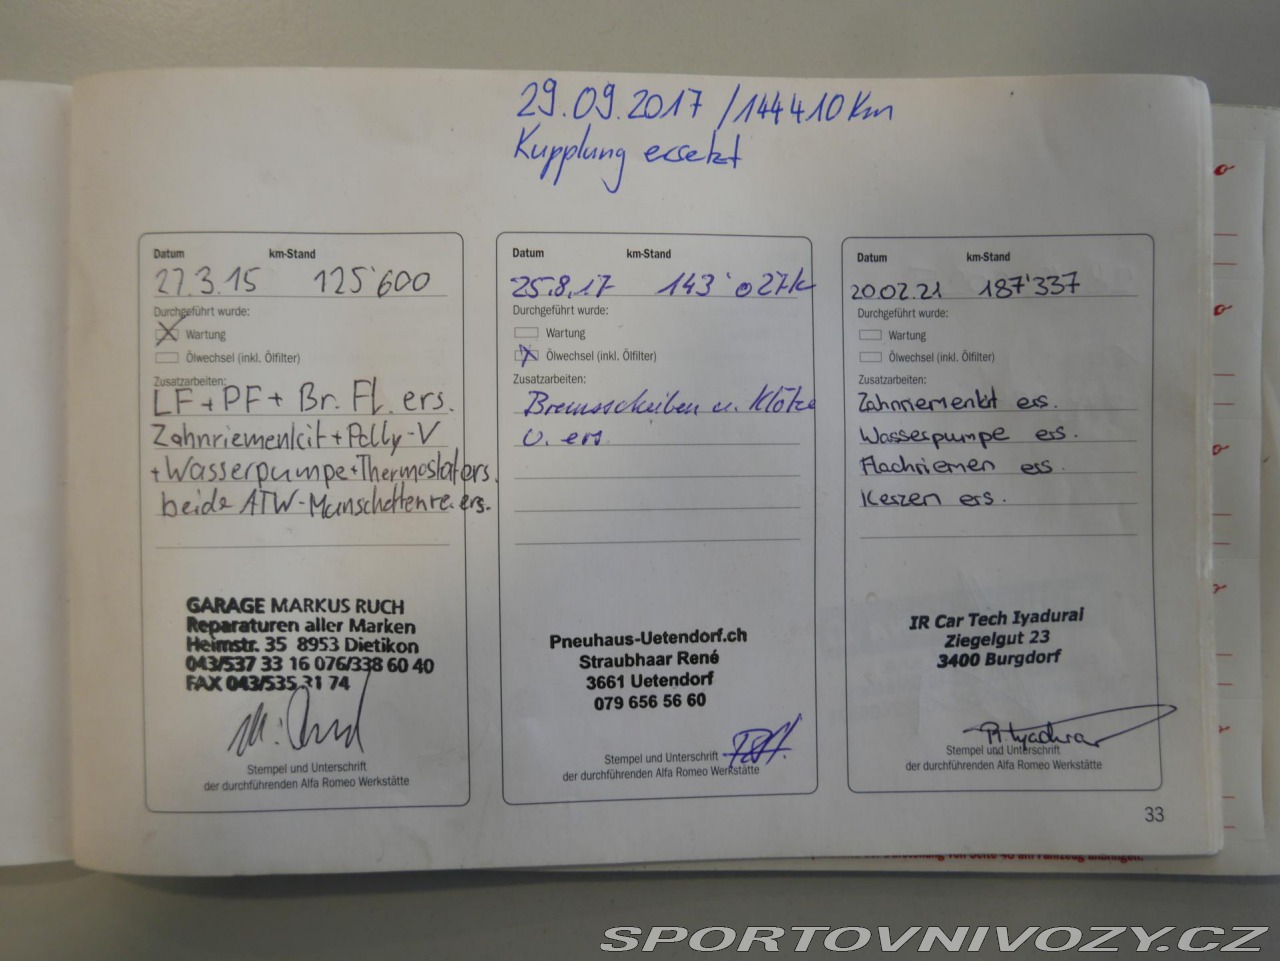 29.09.2017 / 144410 Km
Kupplung ersetzt
Datum km-Stand
27.3.15 125'600
Durchgeführt wurde:
Wartung
Ölwechsel (inkl. Ölfilter)
Zusatzarbeiten:
LF + PF + Br. Fl. ers.
Zahnriemenkit + Polly-V
+ Wasserpumpe + Thermostat ers.
beide ATW-Manschetten re. ers.
GARAGE MARKUS RUCH
Reparaturen aller Marken
Heimstr. 35 8953 Dietikon
043/537 33 16 076/338 60 40
FAX 043/535 31 74
Stempel und Unterschrift
der durchführenden Alfa Romeo Werkstätte
Datum km-Stand
25.8.17 143'027k
Durchgeführt wurde:
Wartung
Ölwechsel (inkl. Ölfilter)
Zusatzarbeiten:
Bremsscheiben u. Klötze
v. ers
Pneuhaus-Uetendorf.ch
Straubhaar René
3661 Uetendorf
079 656 56 60
Stempel und Unterschrift
der durchführenden Alfa Romeo Werkstätte
Datum km-Stand
20.02.21 187'337
Durchgeführt wurde:
Wartung
Ölwechsel (inkl. Ölfilter)
Zusatzarbeiten:
Zahnriemenkit ers.
Wasserpumpe ers.
Flachriemen ers.
Kerzen ers.
IR Car Tech Iyadurai
Ziegelgut 23
3400 Burgdorf
Stempel und Unterschrift
der durchführenden Alfa Romeo Werkstätte
33
SPORTOVNIVOZY.CZ